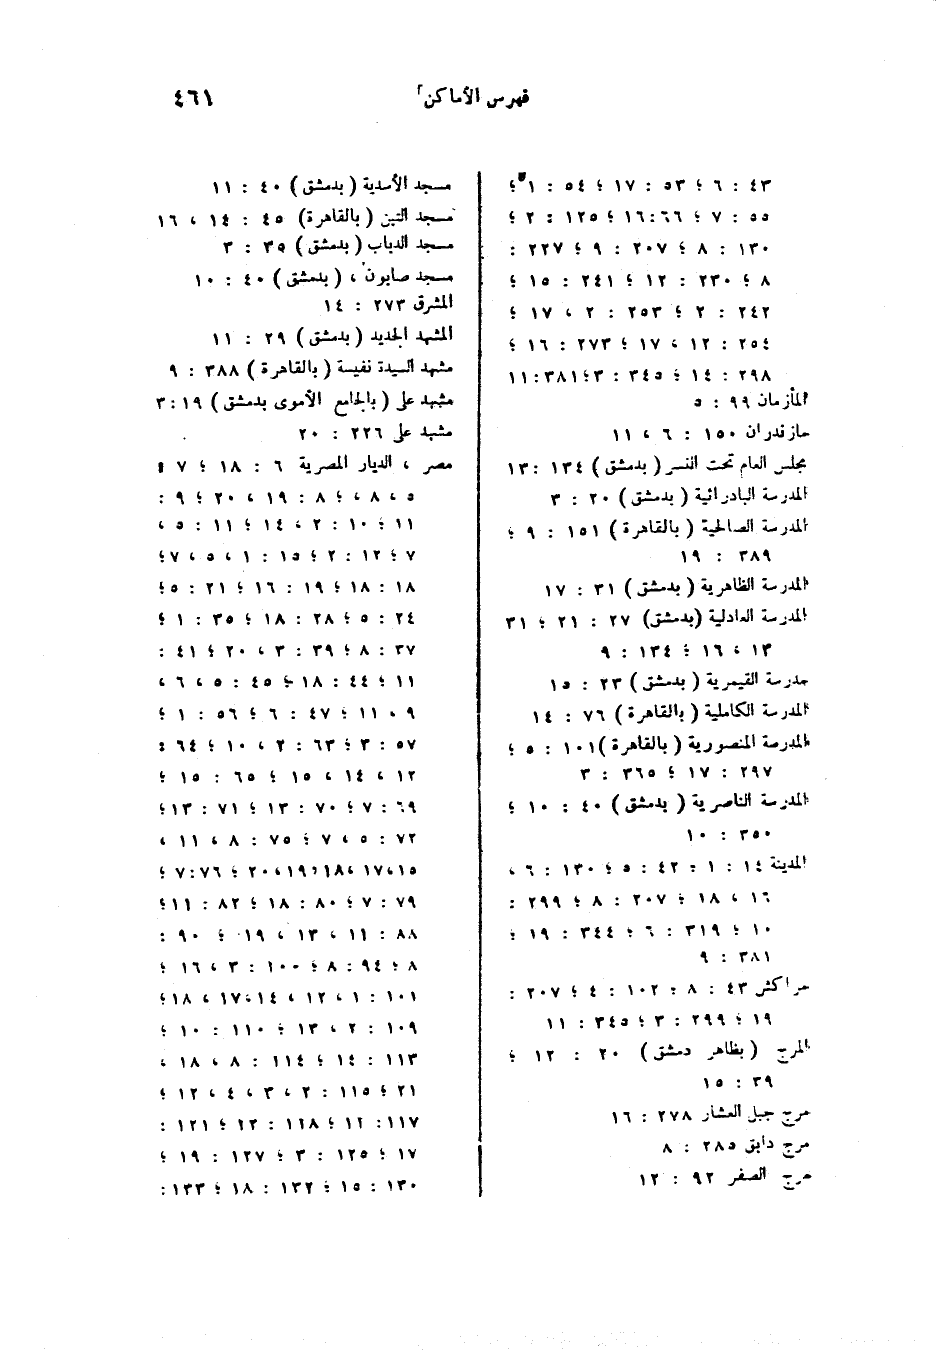 فهرس الأماكن ٤٦١
٤٣ : ٦ ؛ ٥٣ : ١٧ ؛ ٥٤ : ١ ؛
٥٥ : ٧ ؛ ٦٦ : ١٦ ؛ ١٢٥ : ٢ ؛
١٣٠ : ٨ ؛ ٢٠٧ : ٩ ؛ ٢٢٧ :
٨ ؛ ٢٣٠ : ١٢ ؛ ٢٤١ : ١٥ ؛
٢٤٢ : ٢ ؛ ٢٥٣ : ٢ ، ١٧ ؛
٢٥٤ : ١٢ ، ١٧ ؛ ٢٧٣ : ١٦ ؛
٢٩٨ : ١٤ ؛ ٣٤٥ : ٣ ؛ ٣٨١ : ١١
المأزمان ٩٩ : ٥
مازندران ١٥٠ : ٦ ، ١١
مجلس العام تحت النسر ( بدمشق ) ١٣٤ : ١٣
المدرسة البادرائية ( بدمشق ) ٢٠ : ٣
المدرسة الصالحية ( بالقاهرة ) ١٥١ : ٩ ؛
٣٨٩ : ١٩
المدرسة الظاهرية ( بدمشق ) ٣١ : ١٧
المدرسة العادلية (بدمشق) ٢٧ : ٢١ ؛ ٣١
١٣ ، ١٦ ؛ ١٣٤ : ٩
مدرسة القيمرية ( بدمشق ) ٢٣ : ١٥
المدرسة الكاملية ( بالقاهرة ) ٧٦ : ١٤
المدرسة المنصورية ( بالقاهرة ) ١٠١ : ٥ ؛
٢٩٧ : ١٧ ؛ ٣٦٥ : ٣
المدرسة الناصرية ( بدمشق ) ٤٠ : ١٠ ؛
٣٥٠ : ١٠
المدينة ١٤ : ١ ؛ ٤٢ : ٥ ؛ ١٣٠ : ٦ ،
١٦ ، ١٨ ؛ ٢٠٧ : ٨ ؛ ٢٩٩ :
١٠ ؛ ٣١٩ : ٦ ؛ ٣٤٤ : ١٩ ؛
٣٨١ : ٩
مراكش ٤٣ : ٨ ؛ ١٠٢ : ٤ ؛ ٢٠٧ :
١٩ ؛ ٢٩٩ : ٣ ؛ ٣٤٥ : ١١
المرج ( بظاهر دمشق ) ٢٠ : ١٢ ؛
٣٩ : ١٥
مرج جبل العشار ٢٧٨ : ١٦
مرج دابق ٢٨٥ : ٨
مرج الصفر ٩٢ : ١٢
مسجد الأسدية ( بدمشق ) ٤٠ : ١١
مسجد التبن ( بالقاهرة ) ٤٥ : ١٤ ، ١٦
مسجد الدباب ( بدمشق ) ٣٥ : ٣
مسجد صابون ، ( بدمشق ) ٤٠ : ١٠
المشرق ٢٧٣ : ١٤
المشهد الجديد ( بدمشق ) ٢٩ : ١١
مشهد السيدة نفيسة ( بالقاهرة ) ٣٨٨ : ٩
مشهد على ( بالجامع الأموى بدمشق ) ١٩ : ٣
مشهد على ٢٢٦ : ٢٠
مصر ، الديار المصرية ٦ : ١٨ ؛ ٧ :
٥ ، ٨ ، ؛ ٨ : ١٩ ، ٢٠ ؛ ٩ :
١١ ؛ ١٠ : ٢ ، ١٤ ؛ ١١ : ٥ ،
٧ ؛ ١٢ : ٢ ؛ ١٥ : ١ ، ٥ ، ٧ ؛
١٨ : ١٨ ؛ ١٩ : ١٦ ؛ ٢١ : ٥ ؛
٢٤ : ٥ ؛ ٢٨ : ١٨ ؛ ٣٥ : ١ ؛
٣٧ : ٨ ؛ ٣٩ : ٣ ، ٢٠ ؛ ٤١ :
١١ ؛ ٤٤ : ١٨ ؛ ٤٥ : ٥ ، ٦ ،
٩ ، ١١ ؛ ٤٧ : ٦ ؛ ٥٦ : ١ ؛
٥٧ : ٣ ؛ ٦٣ : ٢ ، ١٠ ؛ ٦٤ :
١٢ ، ١٤ ، ١٥ ؛ ٦٥ : ١٥ ؛
٦٩ : ٧ ؛ ٧٠ : ١٣ ؛ ٧١ : ١٣ ؛
٧٢ : ٥ ، ٧ ؛ ٧٥ : ٨ ، ١١ ،
١٥ ، ١٧ ، ١٨ ، ١٩ ، ٢٠ ؛ ٧٦ : ٧ ؛
٧٩ : ٧ ؛ ٨٠ : ١٨ ؛ ٨٢ : ١١ ؛
٨٨ : ١١ ، ١٣ ، ١٩ ؛ ٩٠ :
٨ ؛ ٩٤ : ٨ ؛ ١٠٠ : ٣ ، ١٦ ؛
١٠١ : ١ ، ١٢ ، ١٤ ، ١٧ ، ١٨ ؛
١٠٩ : ٢ ، ١٣ ؛ ١١٠ : ١٠ ؛
١١٣ : ١٤ ؛ ١١٤ : ٨ ، ١٨ ،
٢١ ؛ ١١٥ : ٢ ، ٣ ، ٤ ، ١٢ ؛
١١٧ : ١٢ ؛ ١١٨ : ١٣ ؛ ١٢١ :
١٧ ؛ ١٢٥ : ٣ ؛ ١٢٧ : ١٩ ؛
١٣٠ : ١٥ ؛ ١٣٢ : ١٨ ؛ ١٣٣ :